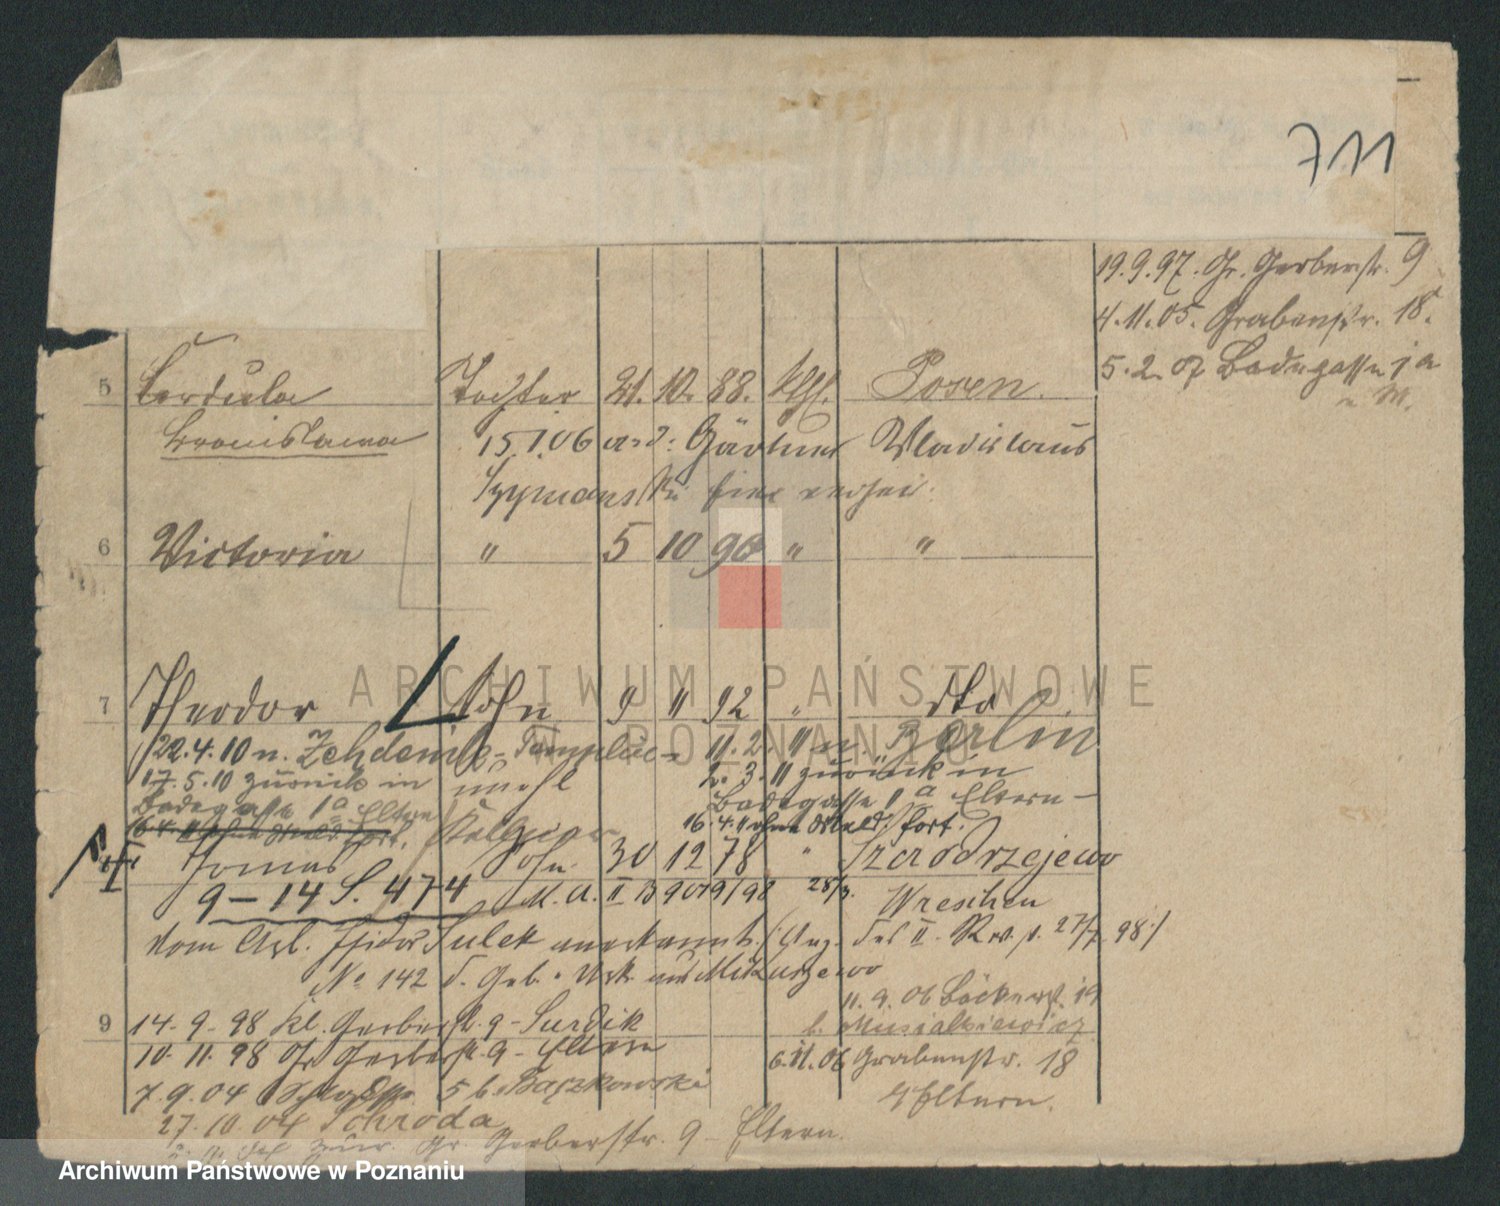 711
19.9.97. Gr. Gerberstr. 9
4.11.05. Grabenstr. 18.
5.2.07 Badegasse 1a
5 Cordula Tochter 21. 10. 88. kth. Posen.
Bronislawa 15.1.06 a. d. Gärtner Wladislaus
Szymanski hier verhei.
6 Victoria " 5 10 90 " "
7 Theodor Sohn 9 11 92 " dto
22.4.10 n. Zehdenick-Templin- 11.2.11 n. Berlin
17.5.10 zurück in 2.3.11 zurück in
Badegasse 1a Eltern Badegasse 1a Eltern-
16.4.11 ohne fort. 16.4.11 ohne fort.
Tomas Sohn 30 12 78 " Szczodrzejewo
9-14 S. 474 M. A. II 28/3. Wreschen
vom Isidor Sulek anerkannt. des II. 27/7 98
No 142 d. Geb. Urk. aus Mikuszewo
11.9.06 Bäckerstr. 19
9 14.9.98 Kl. Gerberstr. 9 - Surdik b. Musialkiewicz
10.11.98 Gr. Gerberstr. 9 - Eltern 6.11.06 Grabenstr. 18
7.9.04 5 b. Baszkowski Eltern.
27.10.04 Schroda
zur. Gr. Gerberstr. 9 - Eltern.
ARCHIWUM PAŃSTWOWE
W POZNANIU
Archiwum Państwowe w Poznaniu